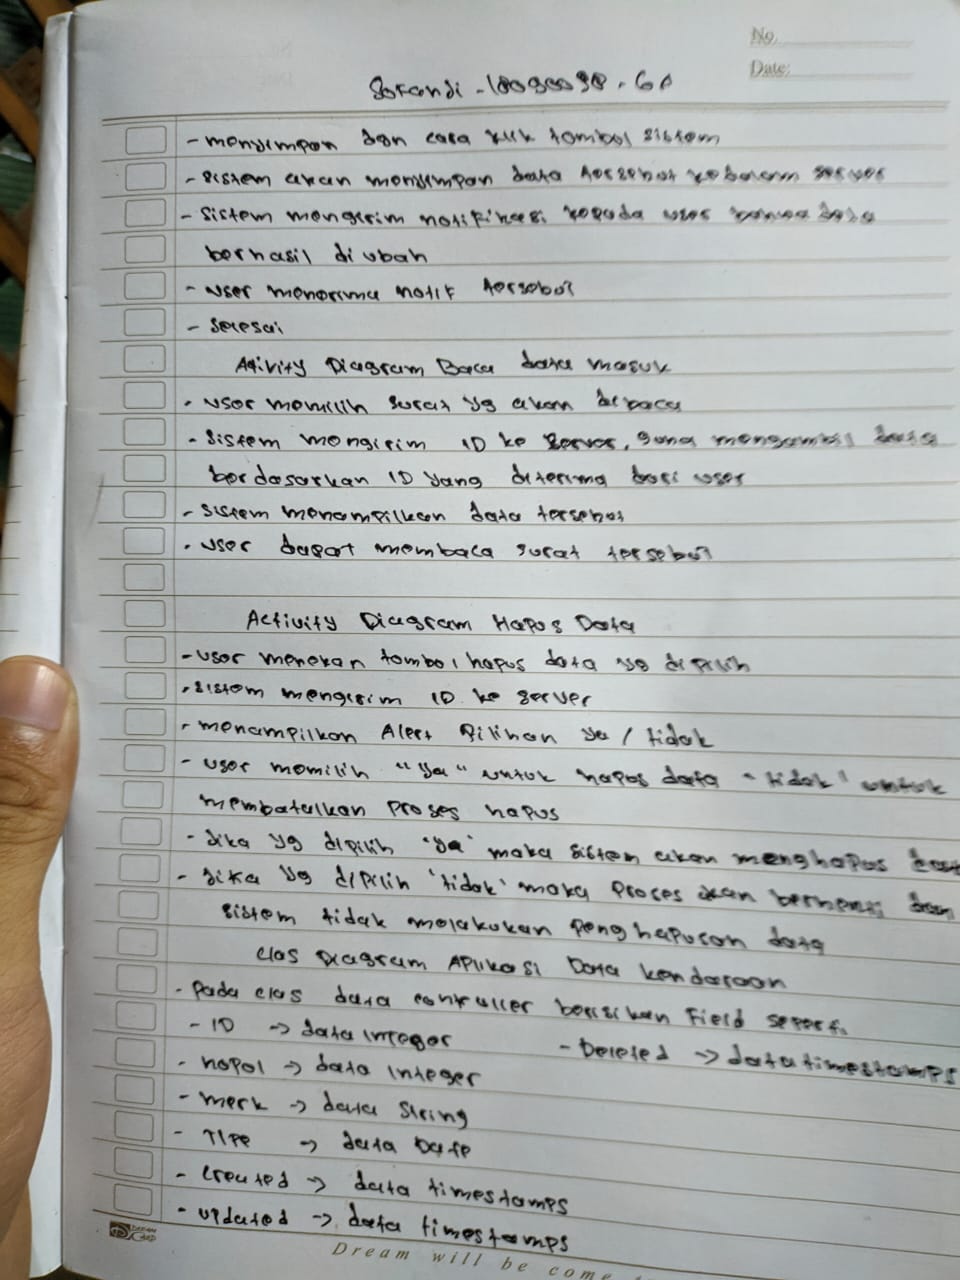 No.
Date:
Sofandi - 18090098 - 6A
- menyimpan dgn cara klik tombol sistem
- sistem akan menyimpan data tersebut kedalam server
- sistem mengirim notifikasi kepada user bahwa data
berhasil diubah
- user menerima notif tersebut
- selesai
Ativity Diagram Baca data masuk
- user memilih surat yg akan dibaca
- sistem mengirim ID ke server, guna mengambil data
berdasarkan ID yang diterima dari user
- sistem menampilkan data tersebut
- user dapat membaca surat tersebut
Activity Diagram Hapus Data
- user menekan tombol hapus data yg dipilih
- sistem mengirim ID ke server
- menampilkan Alert pilihan ya / tidak
- user memilih "ya" untuk hapus data "tidak" untuk
membatalkan proses hapus
- jika yg dipilih "ya" maka sistem akan menghapus data
- jika yg dipilih 'tidak' maka proses akan berhenti dan
sistem tidak melakukan penghapusan data
Clas Diagram Aplikasi Data kendaraan
- pada clas data controller berisikan Field seperti
- ID -> data Integer - Deleted -> data timestamps
- nopol -> data Integer
- merk -> data String
- Tipe -> data Date
- Created -> data timestamps
- updated -> data timestamps
Dream will be come